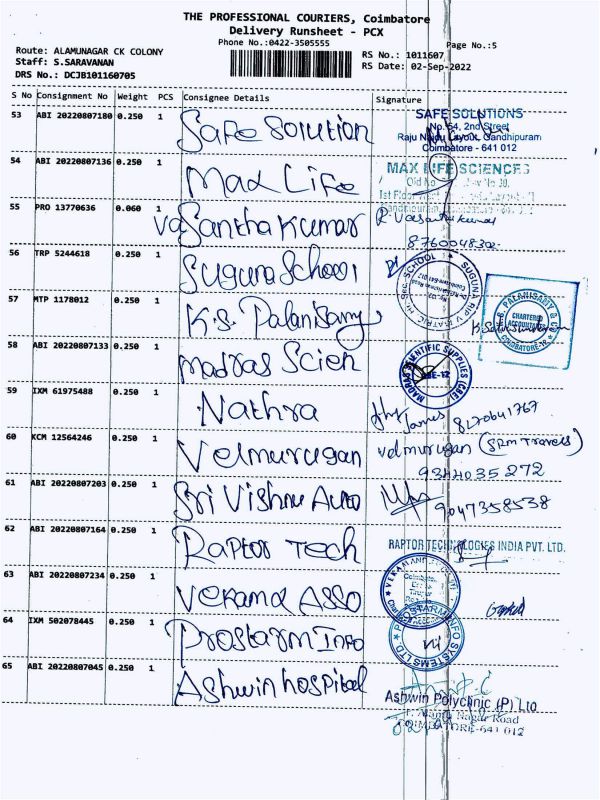 THE PROFESSIONAL COURIERS, Coimbatore
Delivery Runsheet - PCX
Phone No.:0422-3505555
Page No.:5
Route: ALAMUNAGAR CK COLONY
Staff: S.SARAVANAN
DRS No.: DCJB101160705
RS No.: 1011607
RS Date: 02-Sep-2022
S No Consignment No Weight PCS Consignee Details Signature
53 ABI 20220807180 0.250 1 Safe Solution
SAFE SOLUTIONS
No. 54, 2nd Street
Raju Naidu Layout, Gandhipuram
Coimbatore - 641 012
54 ABI 20220807136 0.250 1 Max Life
MAX LIFE SCIENCES
1st Floor
55 PRO 13770636 0.060 1 VaSantha Kumar
R Vasanthakumar
8760048302
56 TRP 5244618 0.250 1 Suguna School
57 MTP 1178012 0.250 1 K.S. Palanisamy
K.S. PALANISAMY & CO
CHARTERED
ACCOUNTANTS
COIMBATORE
58 ABI 20220807133 0.250 1 Madras Scien
MADRAS SCIENTIFIC SUPPLIES (CBE)
CBE-12
59 IXM 61975488 0.250 1 Nathra
James 8170641767
60 KCM 12564246 0.250 1 Velmurugan
velmurugan (SRM Travels)
9344035272
61 ABI 20220807203 0.250 1 Sri Vishnu Auto
9047358538
62 ABI 20220807164 0.250 1 Raptor Tech
RAPTOR TECHNOLOGIES INDIA PVT. LTD.
63 ABI 20220807234 0.250 1 Vekama Asso
64 IXM 502078445 0.250 1 Prostarm Info
PROSTARM INFO SYSTEMS LTD.
65 ABI 20220807045 0.250 1 Ashwin hospital
Ashwin Polyclinic (P) Ltd
Nagar Road
COIMBATORE-641 012